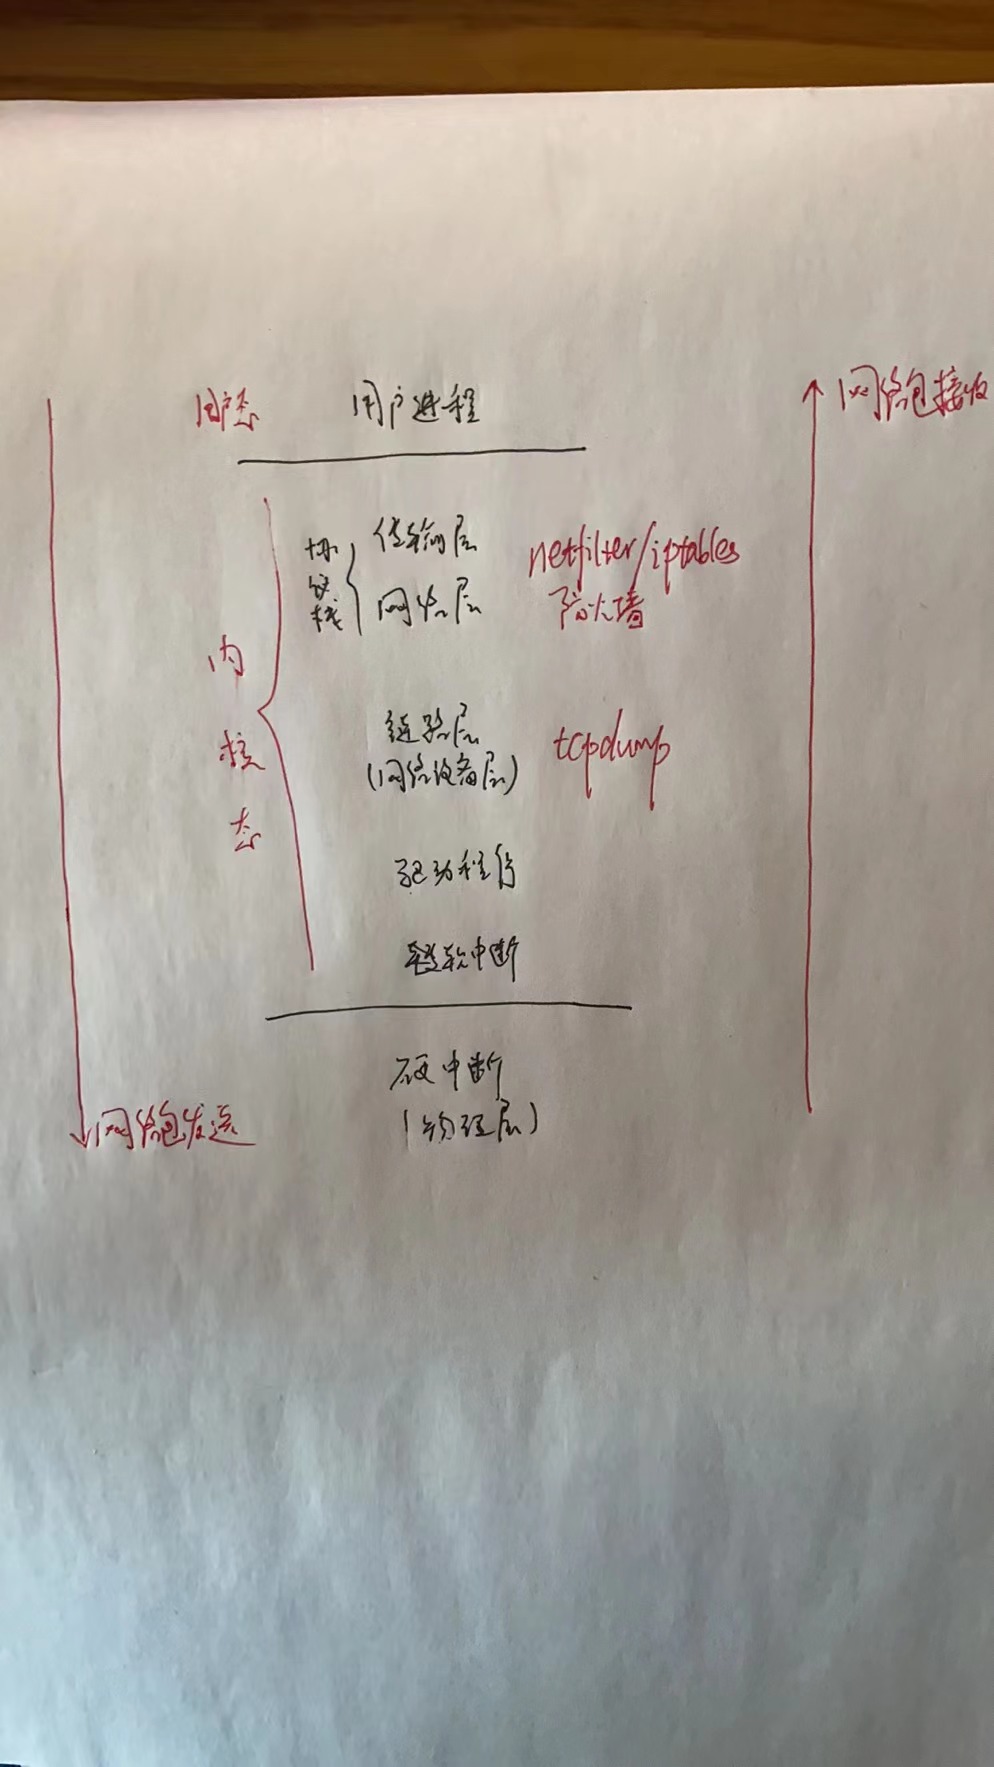 用户态 用户进程
网络包接收
协议栈
传输层
网络层
netfilter/iptables
防火墙
内核态
链路层
(网络设备层)
tcpdump
驱动程序
软中断
硬中断
(物理层)
网络包发送